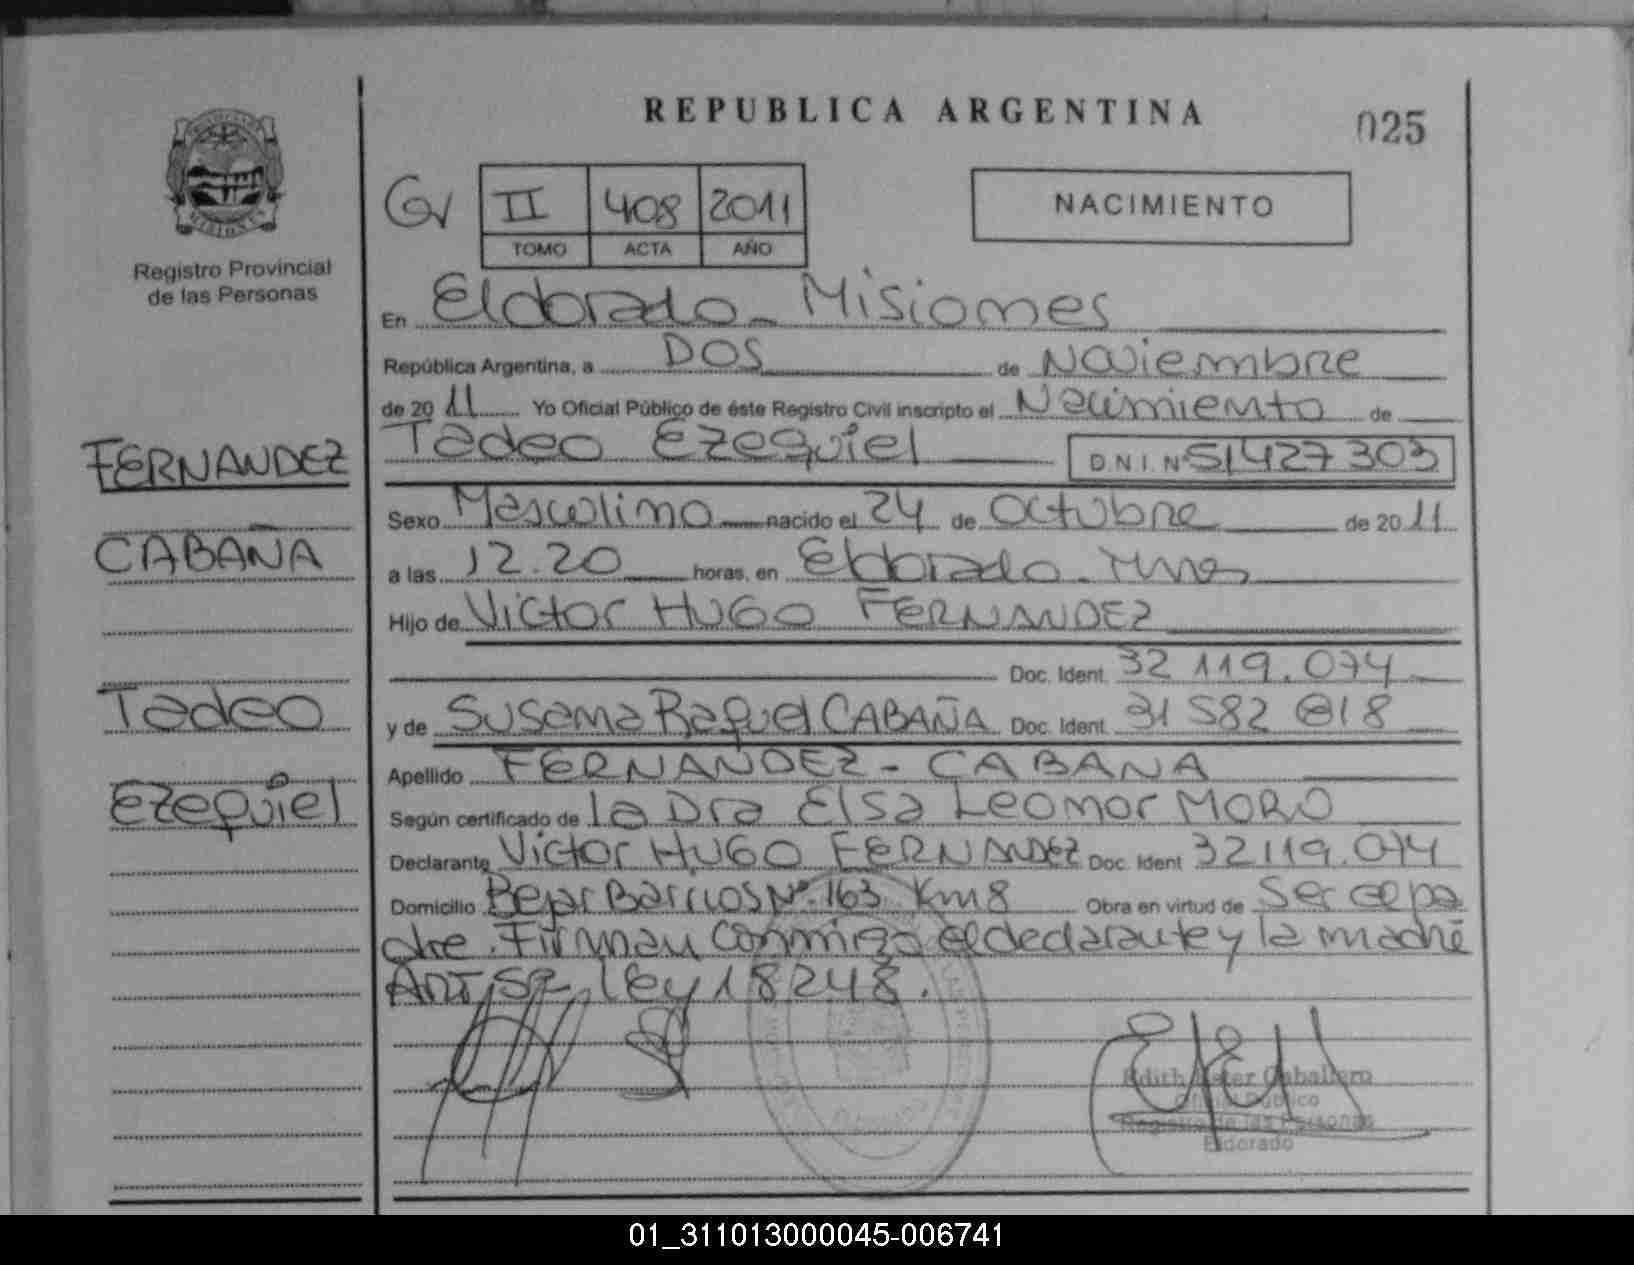 REPUBLICA ARGENTINA
025
Registro Provincial
de las Personas
II 408 2011
TOMO ACTA AÑO
NACIMIENTO
En Eldorado - Misiones
República Argentina, a DOS de Noviembre
de 20 11 Yo Oficial Público de éste Registro Civil inscripto el Nacimiento de
Tadeo Ezequiel D.N.I. Nº 51427303
Sexo Masculino nacido el 24 de Octubre de 20 11
a las 12.20 horas, en Eldorado - Mnes
Hijo de Victor HUGO FERNANDEZ
Doc. Ident. 32 119.074
y de Susana Raquel CABAÑA Doc. Ident. 31 582 818
Apellido FERNANDEZ - CABAÑA
Según certificado de la Dra Elsa Leonor MORO
Declarante Victor HUGO FERNANDEZ Doc. Ident 32119.074
Domicilio Barrios Nº 163 Km 8 Obra en virtud de Ser el pa
dre. Firman conmigo el declarante y la madre
ley 18248.
FERNANDEZ
CABAÑA
Tadeo
Ezequiel
Edith Ester Caballero
Oficial Público
Registro de las Personas
Eldorado
01_311013000045-006741